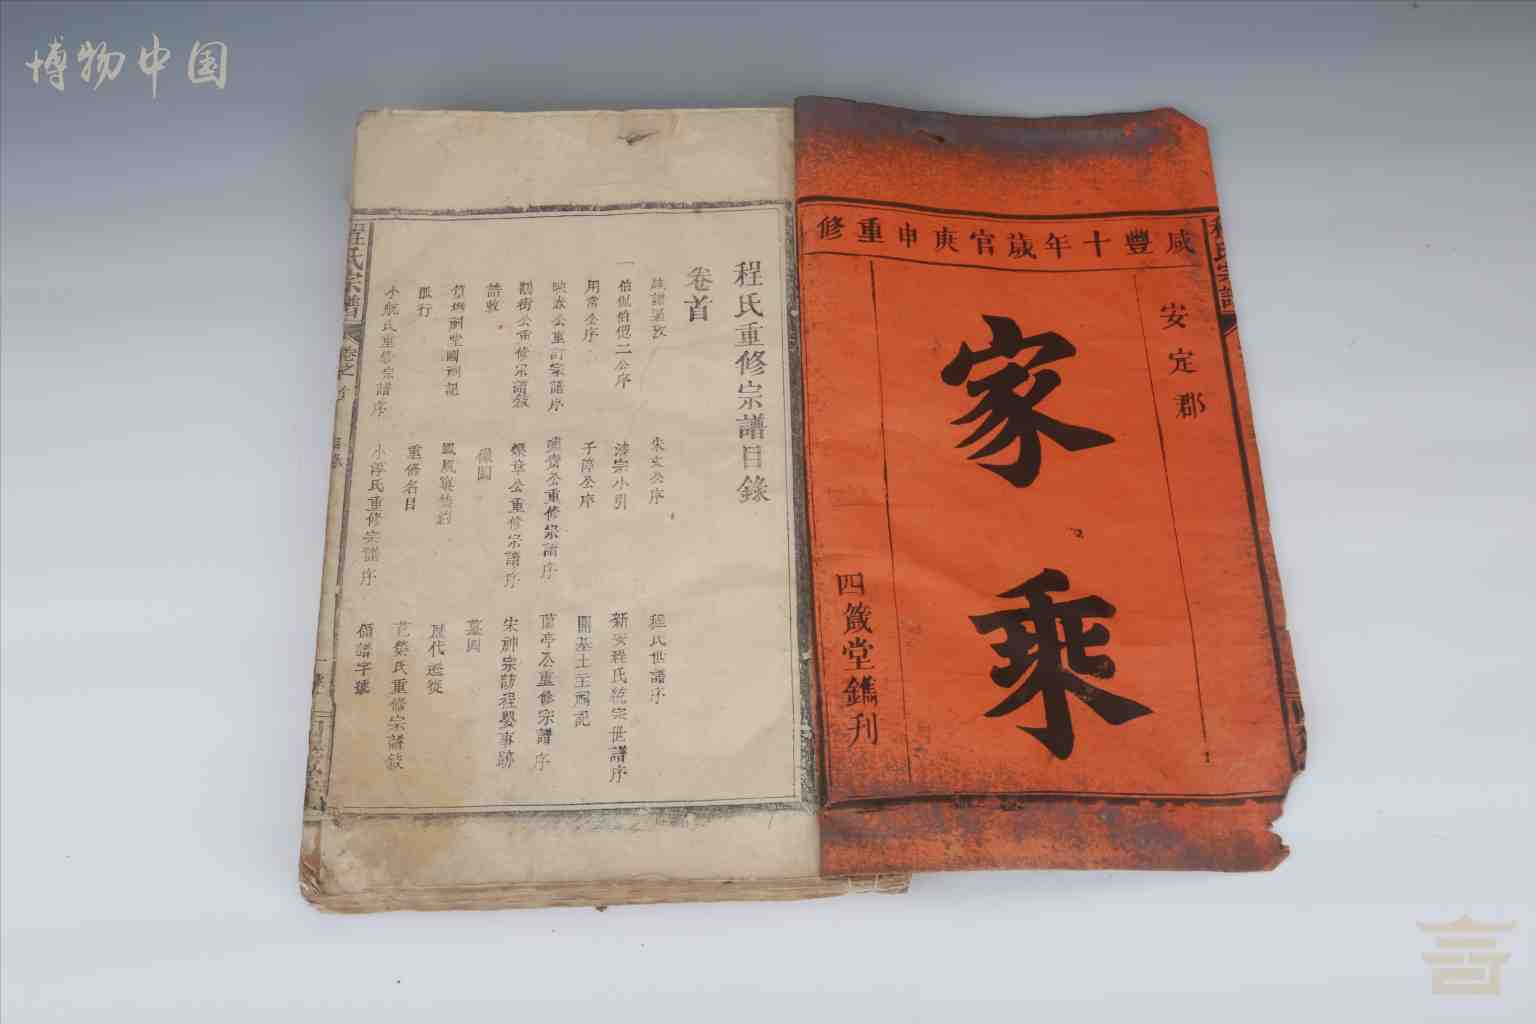 博物中国
咸豐十年歲官庚申重修
安定郡
家乘
四箴堂鐫刊
程氏宗譜
程氏重修宗譜目錄
卷首
朱文公序
程氏世譜序
一伯侃伯偲二公序
溱宗小引
新安程氏統宗世譜序
用常公序
子璋公序
開基土主祠記
映泰公重訂宗譜序
公重修宗譜序
蘭亭公重修宗譜序
觀衛公重修宗譜敘
燦章公重修宗譜序
宋神宗訪程嬰事跡
譜敘
像圖
墓圖
祠記
派行
重修名目
歷代遷徙
范縈氏重修宗譜敘
小 氏重修宗譜序
小 氏重修宗譜序
領譜字號
程氏宗譜
卷之首